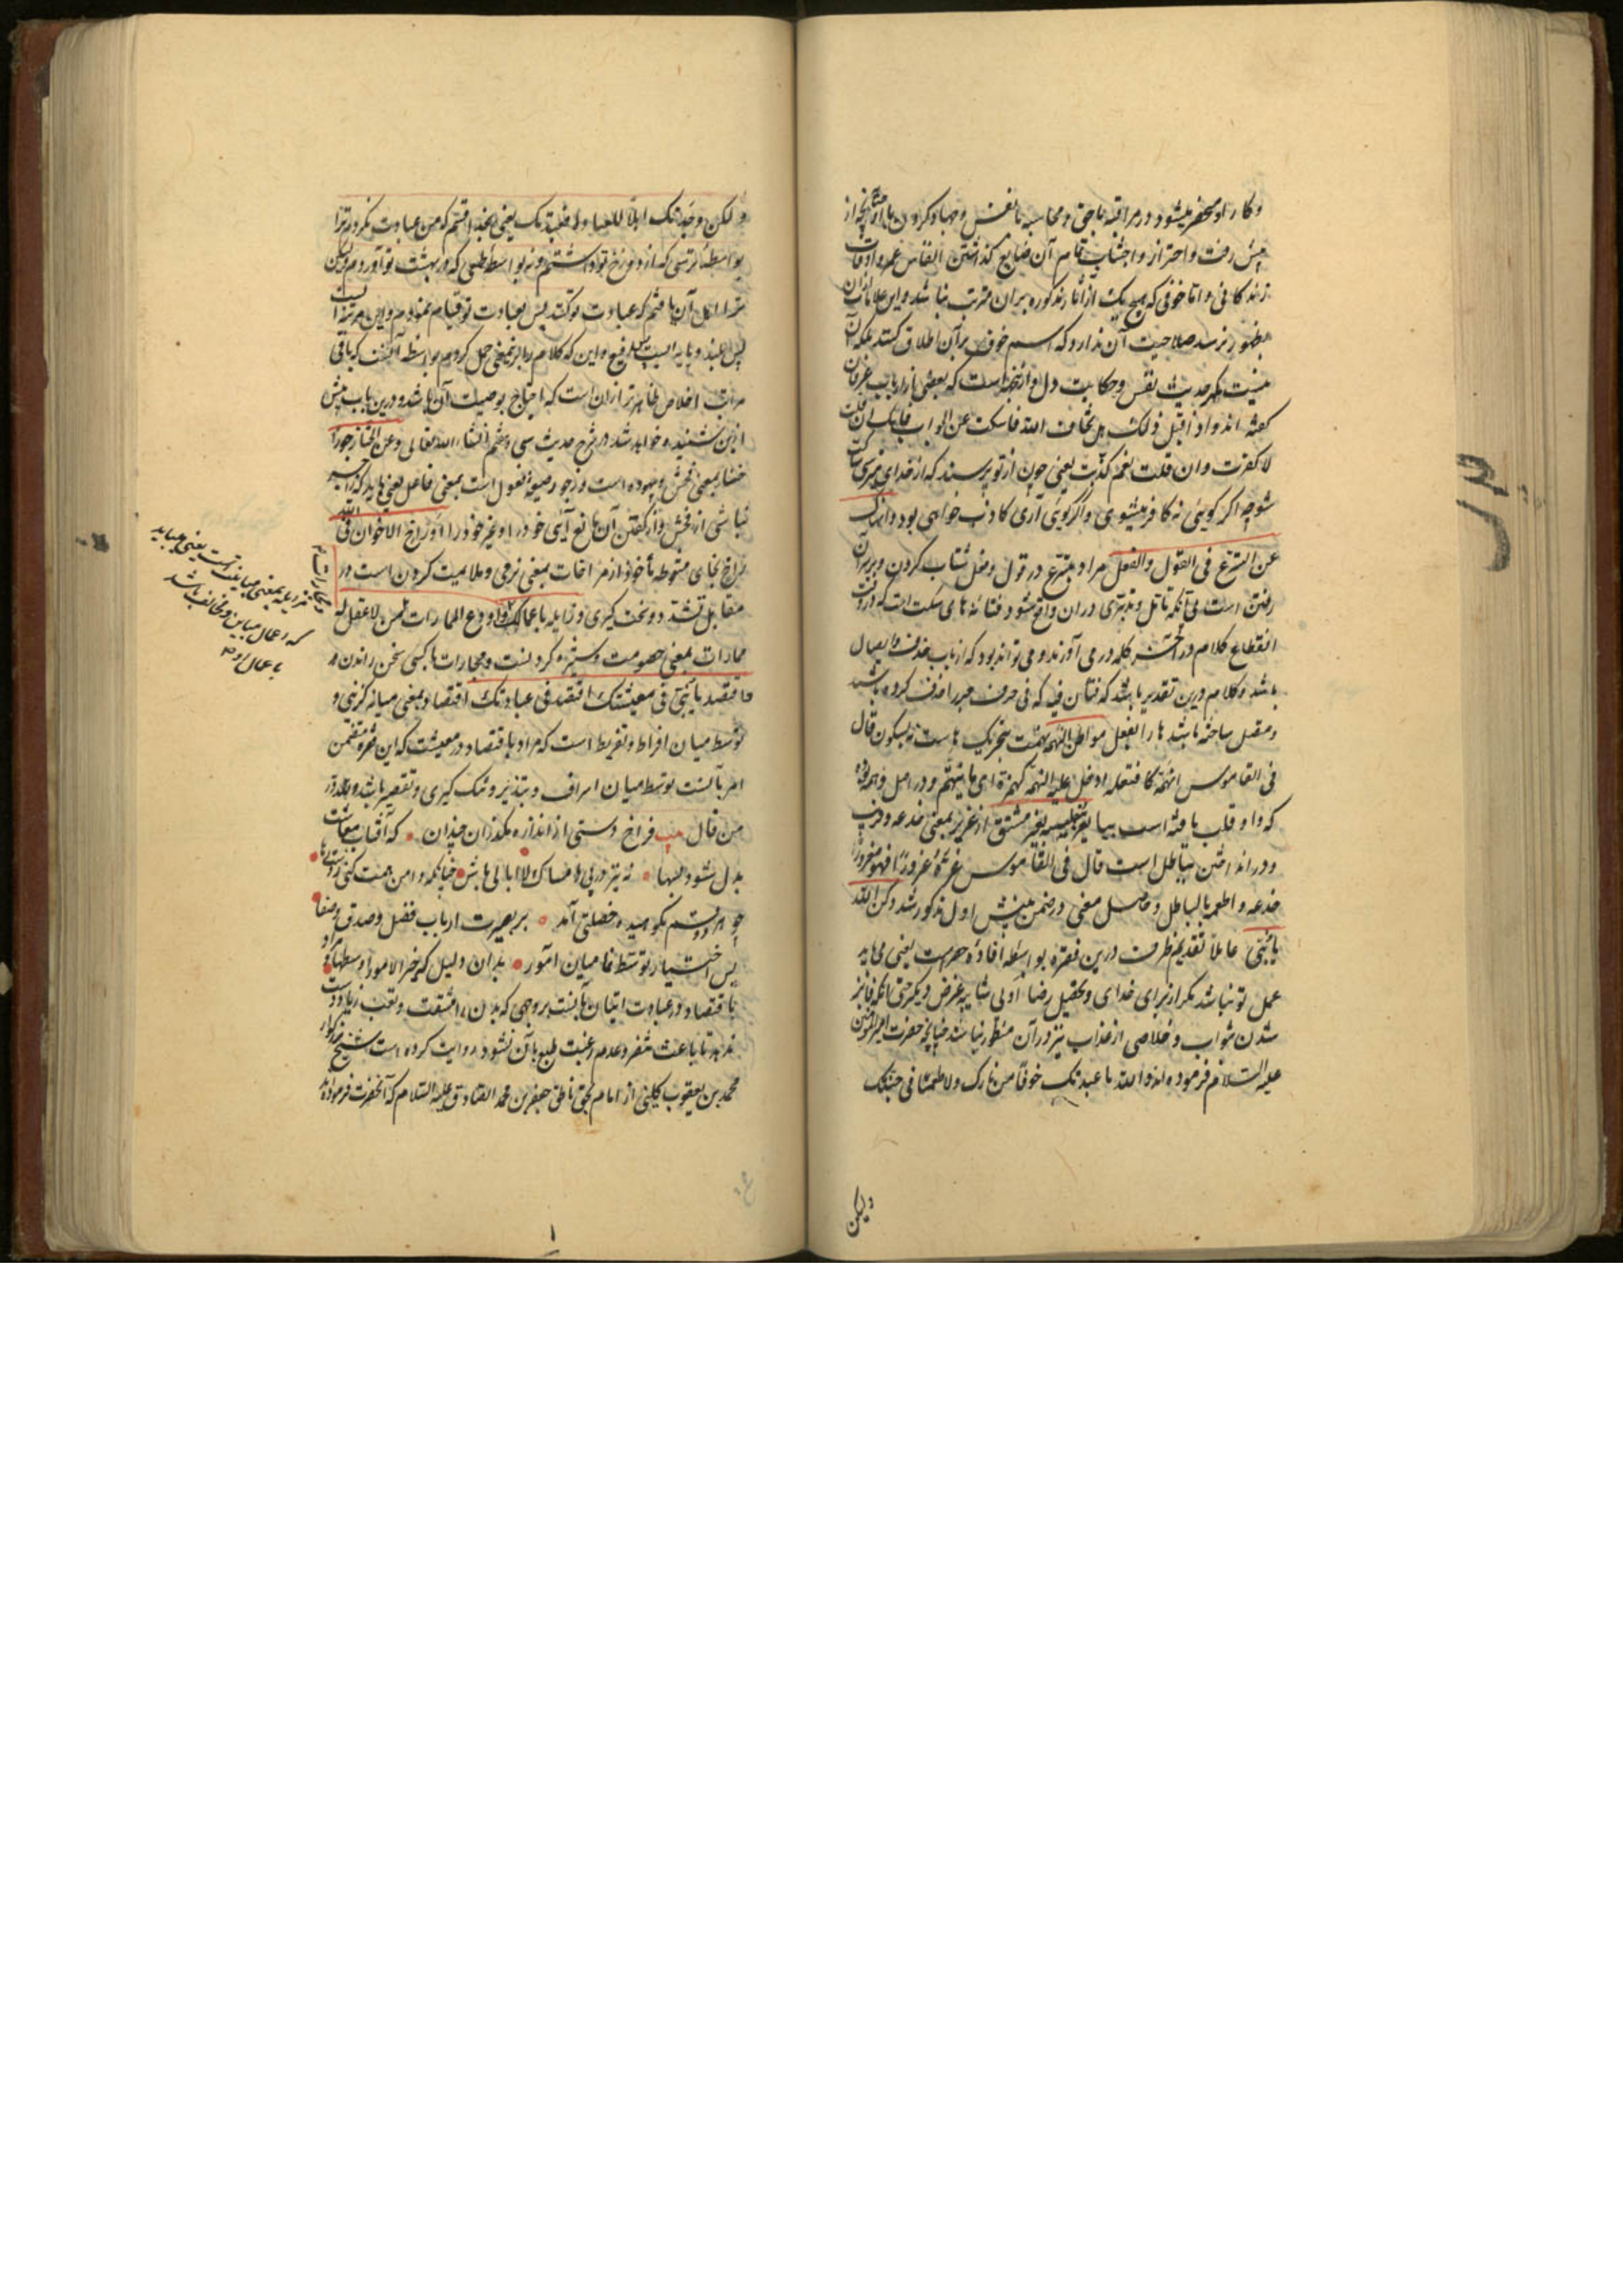 و کار او منحصر میشود در مراقبهٔ باحق و محاسبه با نفس و جهاد کردن با او و آنچه از
پیش رفت و احتراز و اجتناب تمام آن ضایع گذاشتن انفاس عمر و اوقات
زندگانی و اما خوفی که هیچ یک از آثار مذکوره بر آن مترتب نباشد و این علامات از آن
بظهور نرسد صلاحیت آن ندارد که اسم خوف بر آن اطلاق کنند بلکه آن
نیست مگر حدیث نفس و حکایت دل و ازینجا است که بعضی از ارباب عرفان
گفته‌اند و اذا قیل لک هل تخاف الله فاسکت عن الجواب فانک ان قلت
لا کفرت و ان قلت نعم کذبت یعنی چون از تو پرسند که از خدای میترسی ساکت
شو چه اگر گویی نه کافر میشوی و اگر گویی آری کاذب خواهی بود و انهاک
عن التسرع فی القول والفعل مراد بتسرع در قول و فعل شتاب کردن و بر سر آن
رفتن است بی آنکه تأمل و تدبری در آن واقع شود
انقطاع کلام در آخر کلمه در می آورند و می تواند بود که از باب حذف و ایصال
باشد و کلام درین تقدیر باشد که فتأن فیه که فی حرف جر را حذف کرده باشند
و متصل ساخته باشند ها را بفعل مواطن التهمه تهمت بتحریک هاست نه بسکون قال
فی القاموس اتهمه کافتعله ادخل علیه التهمة کهمزة ای ما یتهم و در اصل وهمه بوده
که واو قلب یافته است بتا یغر جلیسه یغر مشتق از غرور بمعنی خدعه و فریب
و در انداختن بباطل است قال فی القاموس غره غرورا فهو مغرور
خدعه و اطمعه بالباطل و حاصل معنی در ضمن بینش اول مذکور شد و کن لله
یا بنی عاملا تقدیم ظرف درین فقره بواسطه افادهٔ حصر است یعنی می باید
عمل تو نباشد مگر از برای خدای و تحصیل رضا او بی شایبه غرض دیگر حتی آنکه فایز
شدن بثواب و خلاصی از عذاب نیز در آن منظور نباشد چنانچه حضرت امیر المؤمنین
علیه السلام فرموده‌اند والله ما عبدتک خوفا من نارک ولا طمعا فی جنتک
ولکن
ولکن وجدتک اهلا للعبادة فعبدتک یعنی بخدا قسم که من عبادت نکردم ترا
بواسطه ترسی که از دوزخ تو داشتم و نه بواسطه طمعی که در بهشت تو آوردم ولیکن
ترا اهل آن یافتم که عبادت تو کنند پس بعبادت تو قیام نمودم و این مرتبه ایست
بس بلند و پایه ایست بس رفیع و این که کلام را برین معنی حمل کردیم بواسطه آنست که باقی
مراتب اخلاص ظاهرتر از آن است که احتیاج بوصیت آن باشد و درین باب پیش
ازین شنیده خواهد شد در شرح حدیث سی و هفتم انشاء الله تعالی و عن الخنا زجورا
خنا بمعنی فحش و بیهوده است و زجور صیغه فعول است بمعنی فاعل یعنی باید که زاجر
باشی از فحش و از گفتن آن مانع آیی خود را و غیر خود را و واخ الاخوان فی الله
مقابل تشدد و سخت گیری و زایله باعمالک و دع الممارات لمن لا عقل له
ممارات بمعنی خصومت و ستیزه کردنست و مجارات با کسی سخن راندن در
واقتصد یا بنی فی معیشتک و اقتصد فی عبادتک اقتصاد بمعنی میانه گزینی و
توسط میان افراط و تفریط است که مراد باقتصاد در معیشت که این فقره متضمن
امر بآنست توسط میان اسراف و تبذیر و تنگ گیری و تقتیر باشد و لله در
من قال بیت فراخ دستی از اندازه مگذران چندان • که آفتاب معاشت
بدل شود بسها • نه نیز در پی امساک لا ابالی باش • چنانکه دامن همت کنی ز دست رها •
چو هر دو قسم نکوهیده خصلتی آمد • بر بصیرت ارباب فضل و صدق و صفا •
پس اختیار توسط نما میان امور • بدان دلیل که خیر الامور اوسطها • و مراد
باقتصاد در عبادت اتیان بآنست بروجهی که بدن را مشقت و تعب زیاد دست
ندهد تا باعث تنفر و عدم رغبت طبع بآن نشود روایت کرده است شیخ بزرگوار
محمد بن یعقوب کلینی از امام بحق ناطق جعفر بن محمد الصادق علیه السلام که آنحضرت فرموده‌اند
مزایله بمعنی مباینت است یعنی میباید
که اعمال مباین و مخالف باشد
با عمال او